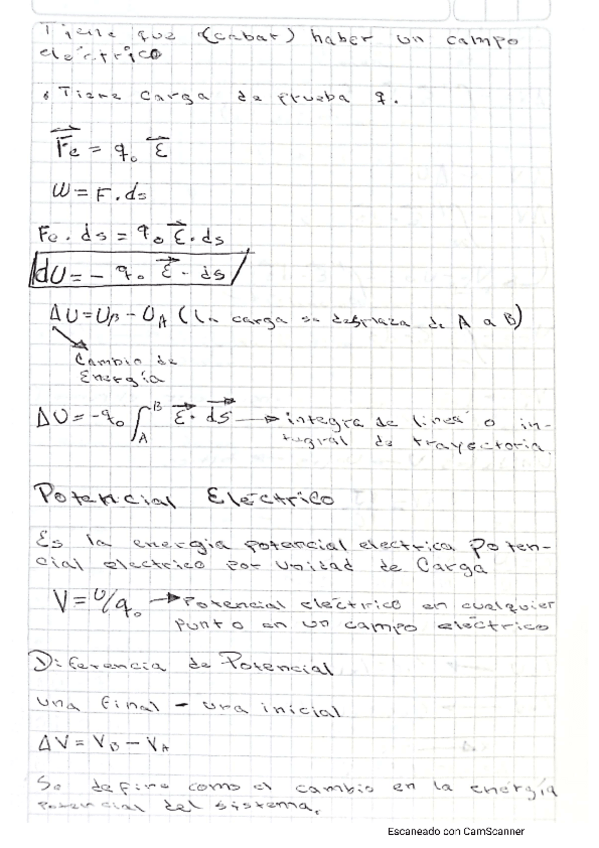 Tiene que (cabar) haber un campo
eléctrico
• Tiene carga de prueba q.
Fe = q₀ E
W = F . ds
Fe . ds = q₀ E . ds
dU = - q₀ E . ds
ΔU = UB - UA (La carga se desplaza de A a B)
Cambio de
Energía
ΔU = -q₀ ∫ᴬᴮ E . ds → integra de linea o in-
tegral de trayectoria.
Potencial Eléctrico
Es la energia potencial electrica Poten-
cial electrico por unidad de Carga
V = U/q₀ → Potencial eléctrico en cualquier
punto en un campo eléctrico
Diferencia de Potencial
una final - una inicial
ΔV = VB - VA
Se define como el cambio en la energía
potencial del sistema.
Escaneado con CamScanner